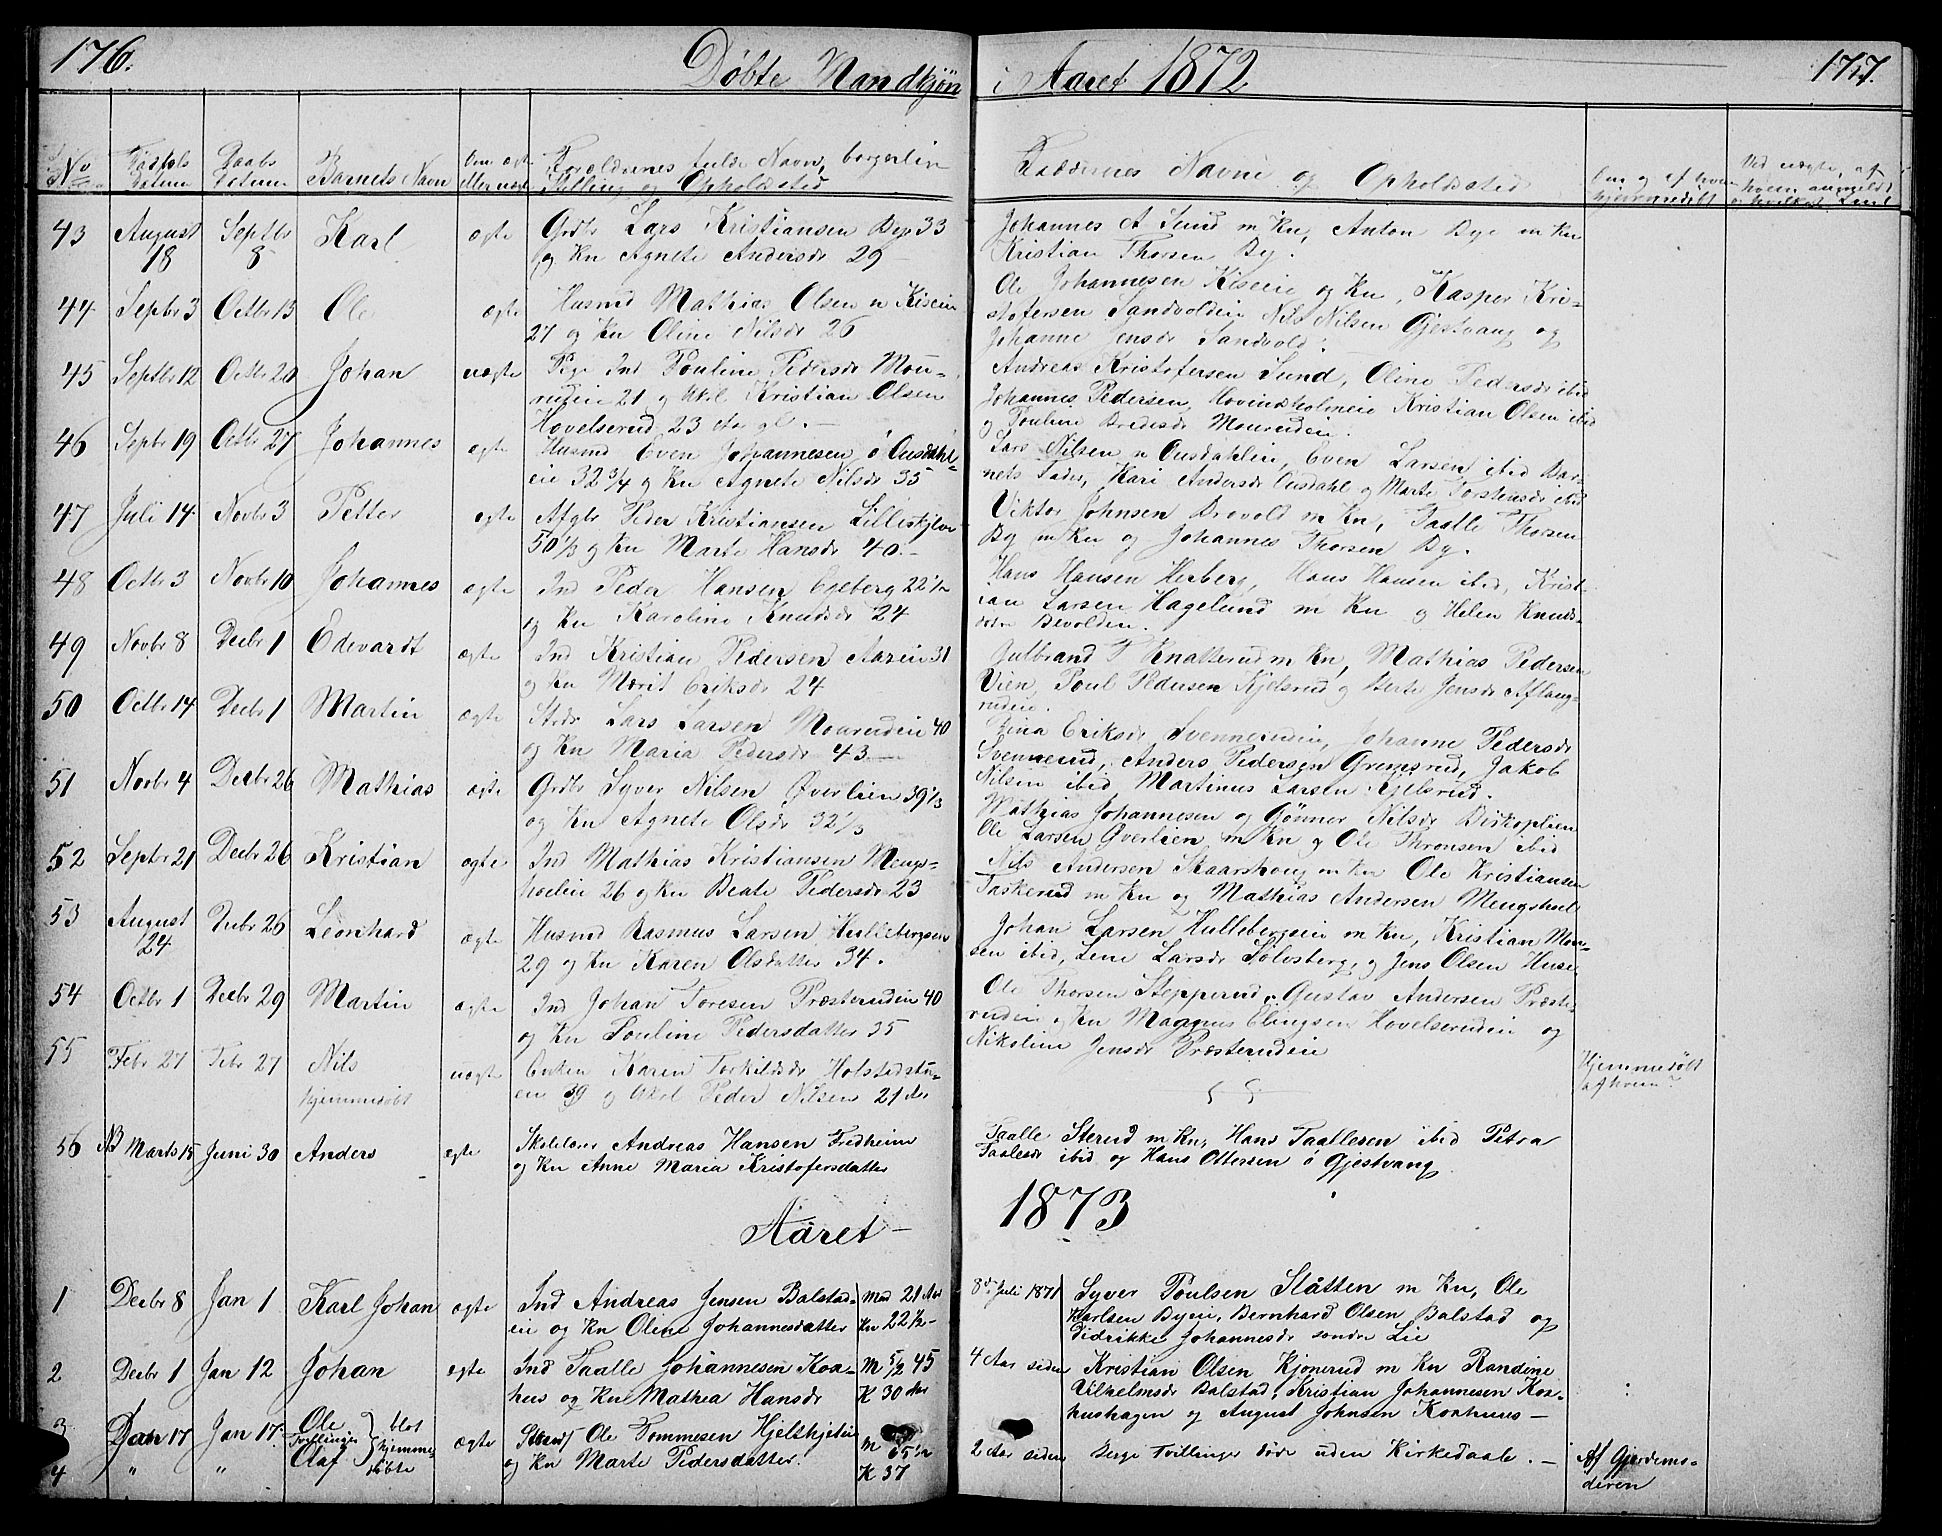 176.
Døbte Mandkjøn
i Aaret 1872
177.
No
Fødsels Datum
Daabs Datum
Barnets Navn
Om ægte eller uægte
Forældrenes fulde Navn, borgerlig
Stilling og Opholdssted
Faddernes Navne og Opholdssted
43 August 18 Septbr 8 Karl ægte
Grdbr Lars Kristiansen Bye 33
og Kn Agnete Andersdr 29
Johannes A Sund m Kn, Anton Bye m Kn
Kristian Thorsen By.
44 Septbr 3 Octbr 13 Ole ægte
Husmd Mathias Olsen u Kiseie
27 og Kn Oline Nilsdr 26
Ole Johannesen Kiseie og Kn, Kasper Kri-
stofersen Sandvoldeie Nils Nilsen Gjestvang og
Johanne Jensdr Sandvold.
45 Septbr 12 Octbr 20 Johan uægte
Pige Ind Pouline Pedersdr Mou-
rudeie 21 og Ukl Kristian Olsen
Hovelserud 23 Aar gl.
Andreas Kristofersen Sund, Oline Pedersdr ibid
Johannes Pedersen, Hovindsholmeie Kristian Olsen ibid
og Pouline Bredesdr Mourudeie.
46 Septbr 19 Octbr 27 Johannes ægte
Husmd Even Johannesen ø Ousdahl-
eie 32 3/4 og Kn Agnete Nilsdr 35
Lars Nilsen u Ousdahleie, Even Larsen ibid Bar-
nets Fader, Kari Andersdr Ousdahl og Marte Torstensdr ibid
47 Juli 14 Novbr 3 Petter ægte
Afgbr Peder Kristiansen Lilleskjelve
50 1/3 og Kn Marte Hansdr 40.
Viktor Johnsen Brovold m Kn, Taalle Thorsen
By m Kn og Johannes Thorsen By.
48 Octbr 3 Novbr 10 Johannes ægte
Ind Peder Hansen Egeberg 22 1/2
og Kn Karoline Knudsdr 24
Hans Hansen Herberg, Hans Hansen ibid, Krist-
ian Larsen Hagelund m Kn og Helen Knuds-
datter Bevolden.
49 Novbr 8 Decbr 1 Edevardt ægte
Ind Kristian Pedersen Aareie 31
og Kn Marit Eriksdr 24
Gulbrand T Knatterud m Kn, Mathias Pedersen
Vien, Poul Pedersen Kjelsrud og Berte Jensdr Aflang-
rudeie.
50 Octbr 14 Decbr 1 Martin ægte
Lars Larsen Mourudeie 40
og Kn Maria Pedersdr 43
Lina Eriksdr Svennerudeie, Johanne Pedersdr
Svennerud, Anders Pedersen Gremsrud, Jakob
Nilsen ibid, Martinus Larsen Kjelsrud.
51 Novbr 4 Decbr 26 Mathias ægte
Grdbr Syver Nilsen Øverlien 39 1/3
og Kn Agnete Olsdr 32 1/3
Mathias Johannesen og Gønner Nilsdr Biskoplien
Ole Larsen Øverlien m Kn og Ole Thronsen ibid
52 Septbr 21 Decbr 26 Kristian ægte
Ind Mathias Kristiansen Mengs-
hoeleie 26 og Kn Beate Pedersdr 23
Nils Andersen Skaarshoug m Kn Ole Kristiansen
Taskerud m Kn og Mathias Andersen Mengshoel
53 August 24 Decbr 26 Leonhard ægte
Husmd Rasmus Larsen Hullebergseie
29 og Kn Karen Olsdatter 34.
Johan Larsen Hullebergseie m Kn, Kristian Mon-
sen ibid, Lene Larsdr Solvsberg, og Jens Olsen Huse
54 Octbr 1 Decbr 29 Martin ægte
Ind Johan Toresen Præsterudeie 40
og Kn Pouline Pedersdatter 35
Ole Thorsen Stepperud, Gustav Andersen Præste-
rudeie og Kn Magnus Elingsen Hovelserudeie og
Nikoline Jensdr Præsterudeie
55 Febr 27 Febr 27 Nils uægte
hjemmedøbt
Enken Karen Torkildsdr Holstadstu-
eie 39 og Ukl Peder Nilsen 21 Aar
Hjemmedøbt
af hvem?
56 NB Marts 15 Juni 30 Anders ægte
Skolelærer Andreas Hansen Fredheim
og Kn Anne Maria Kristofersdatter
Taalle Sterud m Kn, Hans Taallesen ibid Petra
Taalesdr ibid og Hans Ottersen ø Gjestvang
Aaret 1873
1 Decbr 8 Jan 1 Karl Johan ægte
Ind Andreas Jensen Balstad-
eie og Kn Oline Johannesdatter
Md 21 Aar
Kn 22 1/2
8de Juli 1871
Syver Poulsen Slåtten m Kn, Ole
Karlsen Byeie, Bernhard Olsen Balstad og
Didrikke Johannesdr søndre Lie
2 Decbr 1 Jan 12 Johan ægte
Ind Taalle Johannesen Koa-
hus og Kn Mathea Hansdr
M 5/2 45
K 30 Aar
4 Aar siden
Kristian Olsen Kjonerud m Kn Randine
Vilhelmsdr Balstad, Kristian Johannesen Koa-
hushagen og August Johnsen Koahuus
3 Jan 17 Jan 17 Ole
Tvillinger blot
4 " " Olaf hjemme-
døbte
ægte
Ole Tommesen Hjelshjeteie
og Kn Marte Pedersdatter.
M 65 1/2
K 37
2 Aar siden
Berge Tvillinger døde uden Kirkedaab.
Af Gjordemo-
deren